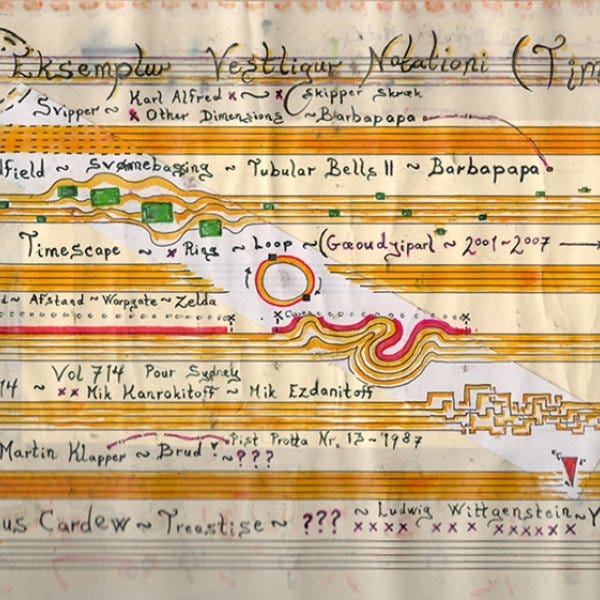 Eksemplur Vestligur Notationi (Tim
Svipper ~ Karl Alfred x ~ x Skipper Skræk
x Other Dimensions ~ Barbapapa
dfield ~ Svømmebassing ~ Tubular Bells II ~ Barbapapa
Timescape ~ x Ring ~ Loop ~ (Gæoudyiparl ~ 2001-2007
d ~ Afstand ~ Warpgate ~ Zelda
Vol 714 Pour Sydney
14 ~ xx Mik Kanrokitoff ~ Mik Ezdanitoff
Pist Protta Nr. 13 - 1987
Martin Klapper ~ Brud ~ ???
us Cardew ~ Treastise ~ ??? ~ Ludwig Wittgenstein ~ Y
xxxx xxx xxxxxx